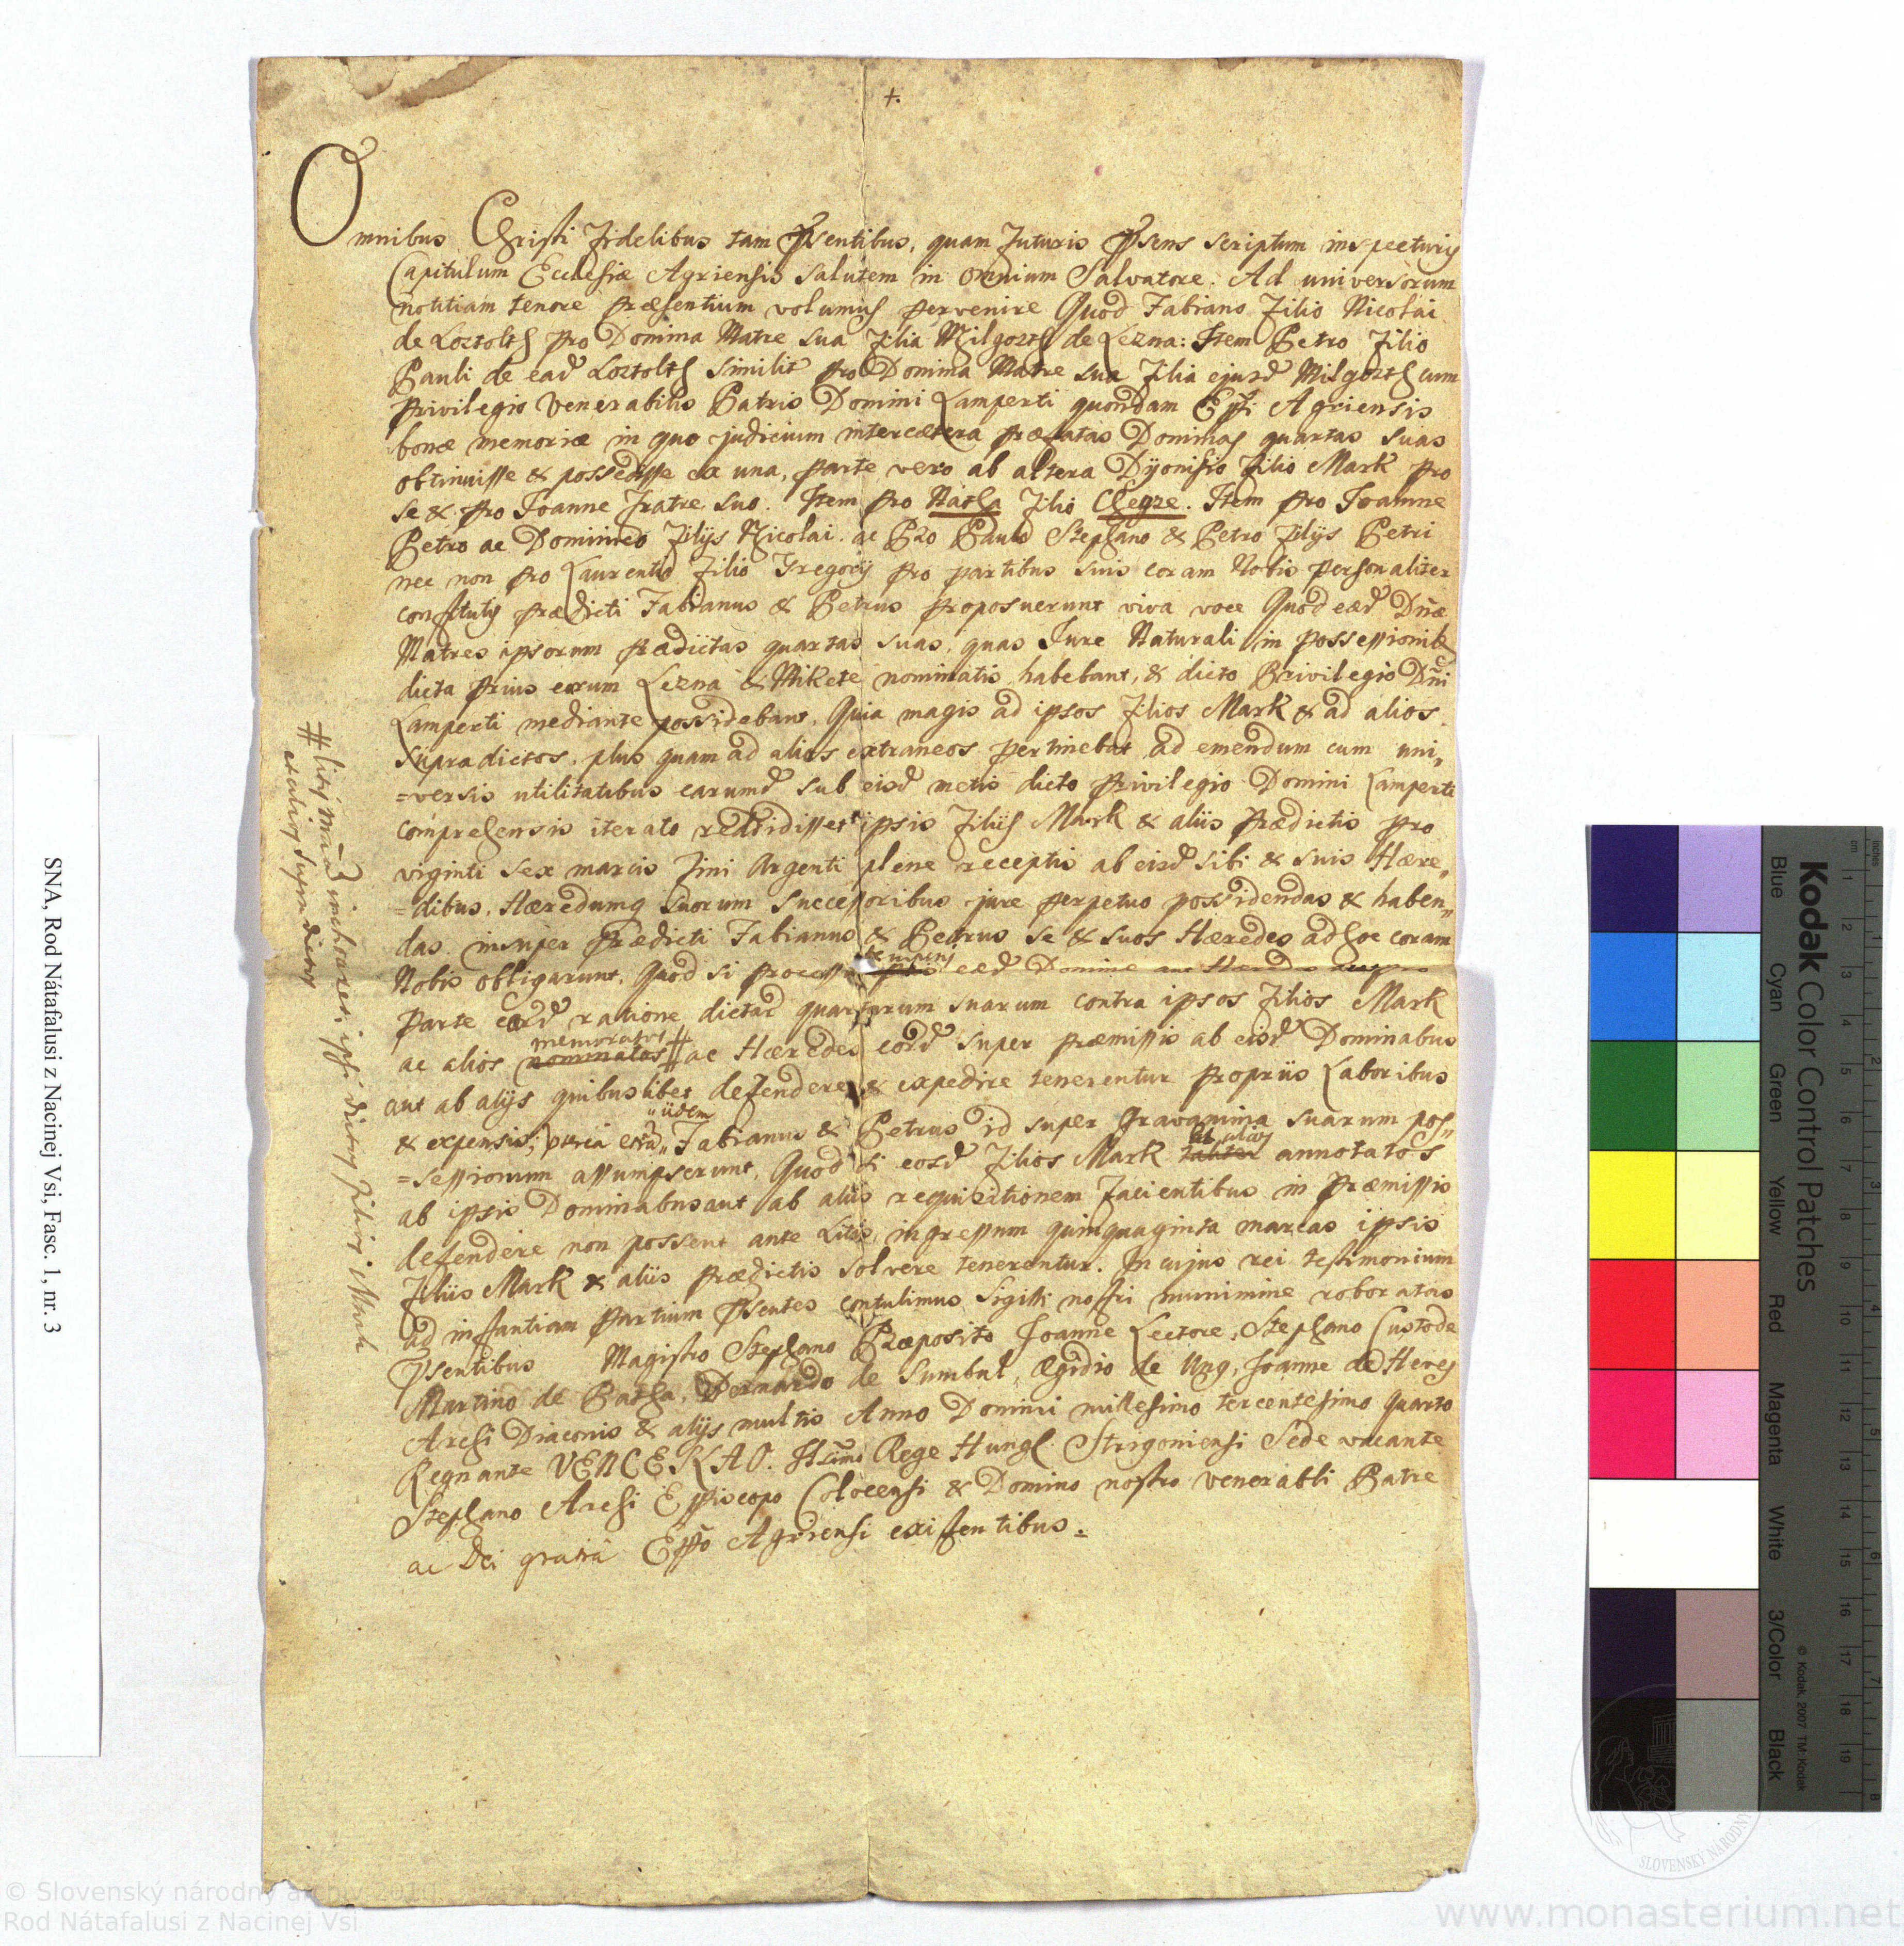 +.
Omnibus Christi Fidelibus tam Psentibus, quam Futuris Psens scriptum inspecturis
Capitulum Ecclesiæ Agriensis salutem in omnium Salvatore. Ad universorum
notitiam tenore præsentium volumus pervenire Quod Fabiano Filio Nicolai
de Loztolth pro Domina Matre sua Filia Milgozth de Lezna: Item Petro Filio
Pauli de ead Loztolth similit pro Domina Matre sua Filia ejusd Milgozth cum
Privilegio Venerabilis Patris Domini Lamperti quondam Eppi Agriensis
bonæ memoriæ in quo judicium intercætera præfatas Dominas quartas suas
obtinuisse & possedisse ex una, parte vero ab altera Dyonisio Filio Mark pro
se & pro Joanne Fratre suo. Item pro Natha Filio Chegze. Item pro Joanne
Petro ac Dominico Filijs Nicolai. ac Pro Paulo Stephano & Petro Filijs Petri
nec non pro Laurentio Filio Gregorij pro partibus suis coram Nobis personaliter
constitutis prædicti Fabianus & Petrus proposuerunt viva voce Quod eæd Dnæ
Matres ipsorum prædictas quartas suas, quas Jure Naturali in possessionib
dicta prius eorum Lezna & Mikete nominatis habebant, & dicto Privilegio Dni
Lamperti mediante possidebant, Quia magis ad ipsos Filios Mark & ad alios
supradictos, plus quam ad alios extraneos pertinebat ad emendum cum uni„
=versis utilitatibus earumd sub eisd metis dicto Privilegio Domini Lamperti
comprehensis iterato reddidissent ipsis Filijs Mark & aliis Prædictis pro
viginti sex marcis Fini Argenti plene receptis ab eisd sibi & suis Hære„
=dibus, Hæredumq suorum Successoribus jure perpetuo possidendas & haben„
das. insuper Prædicti Fabianus & Petrus se & suos Hæredes adhoc coram
Nobis obligarunt, Quod si processu eæd Dominæ aut Hæredes
parte eard ratione dictar quartarum suarum contra ipsos Filios Mark
memoratos
ac alios nominatos # ac Hæredes eord super præmissis ab eisd Dominabus
aut ab alijs quibuslibet defendere & expedire tenerentur propriis Laboribus
iidem
& expensis; Fabianus & Petrus id super Gravamina suarum pos„
et alios
=sessionum assumpserunt, Quod si eosd Filios Mark taliter annotatos
ab ipsis Dominabus aut ab aliis requisitionem Facientibus in Præmissis
defendere non possent ante Litis ingressum quinquaginta marcas ipsis
Filiis Mark & aliis prædictis solvere tenerentur. In cujus rei testimonium
ad instantiam Partium Psentes contulimus Sigilli nostri munimine roboratas
Psentibus Magistro Stephano Præposito Joanne Lectore, Stephano Custode
Martino de Patha, Bernardo de Sumbul, Ægidio de Ung, Joanne de Heves
Archi Diaconis & alijs multis Anno Domini millesimo tercentesimo quarto
Regnante VENCEKAO. Rege Hung. Strigoniensi Sede vacante
Stephano Archi Eppiscopo Colocensi & Domino nostro venerabili Patre
ac Dei gratia Eppo Agriensi existentibus.
# litis mã inchoaret, ipsi dictos Filios Mark
et alios supra dictos
SNA, Rod Nátafalusi z Nacinej Vsi, Fasc. 1, nr. 3
Kodak Color Control Patches
Blue Cyan Green Yellow Red Magenta White 3/Color Black
© Kodak, 2007 TM: Kodak
inches 1 2 3 4 5 6 7 8
cm 1 2 3 4 5 6 7 8 9 10 11 12 13 14 15 16 17 18 19
SLOVENSKÝ NÁRODNÝ
© Slovenský národný archív 2010
Rod Nátafalusi z Nacinej Vsi
www.monasterium.net